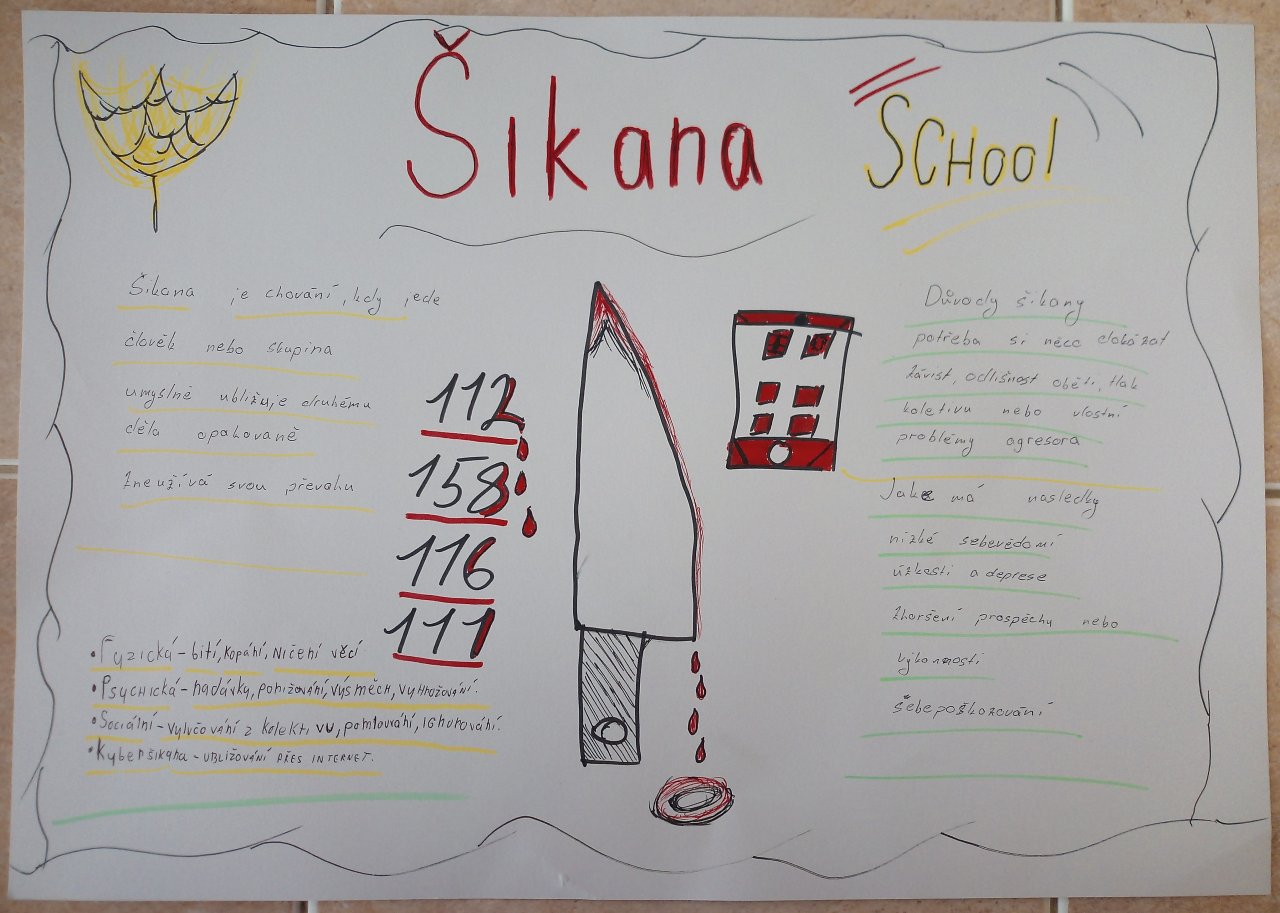 Šikana
SCHOOl
Šikana je chování, kdy jede
člověk nebo skupina
umyslně ubližuje druhému
děla opakovaně
Zneužívá svou převahu
112
158
116
111
• Fyzická - bití, kopání, Ničení věcí
• Psychická - nadávky, ponižování, výsměch, vyhrožování.
• Sociální - vylučování z kolekti vu, pomlouvání, ighorování.
• Kyberšikana - UBLIŽOVÁNÍ PŘES INTERNET.
Důvody šikany
potřeba si něco dokázat
závist, odlišnost oběti, tlak
koletivu nebo vlastní
problémy agresora
Jake má nasledky
nizké sebevědomí
úzkosti a deprese
zhoršení prospěchu nebo
výkonnosti
šebepoškozování